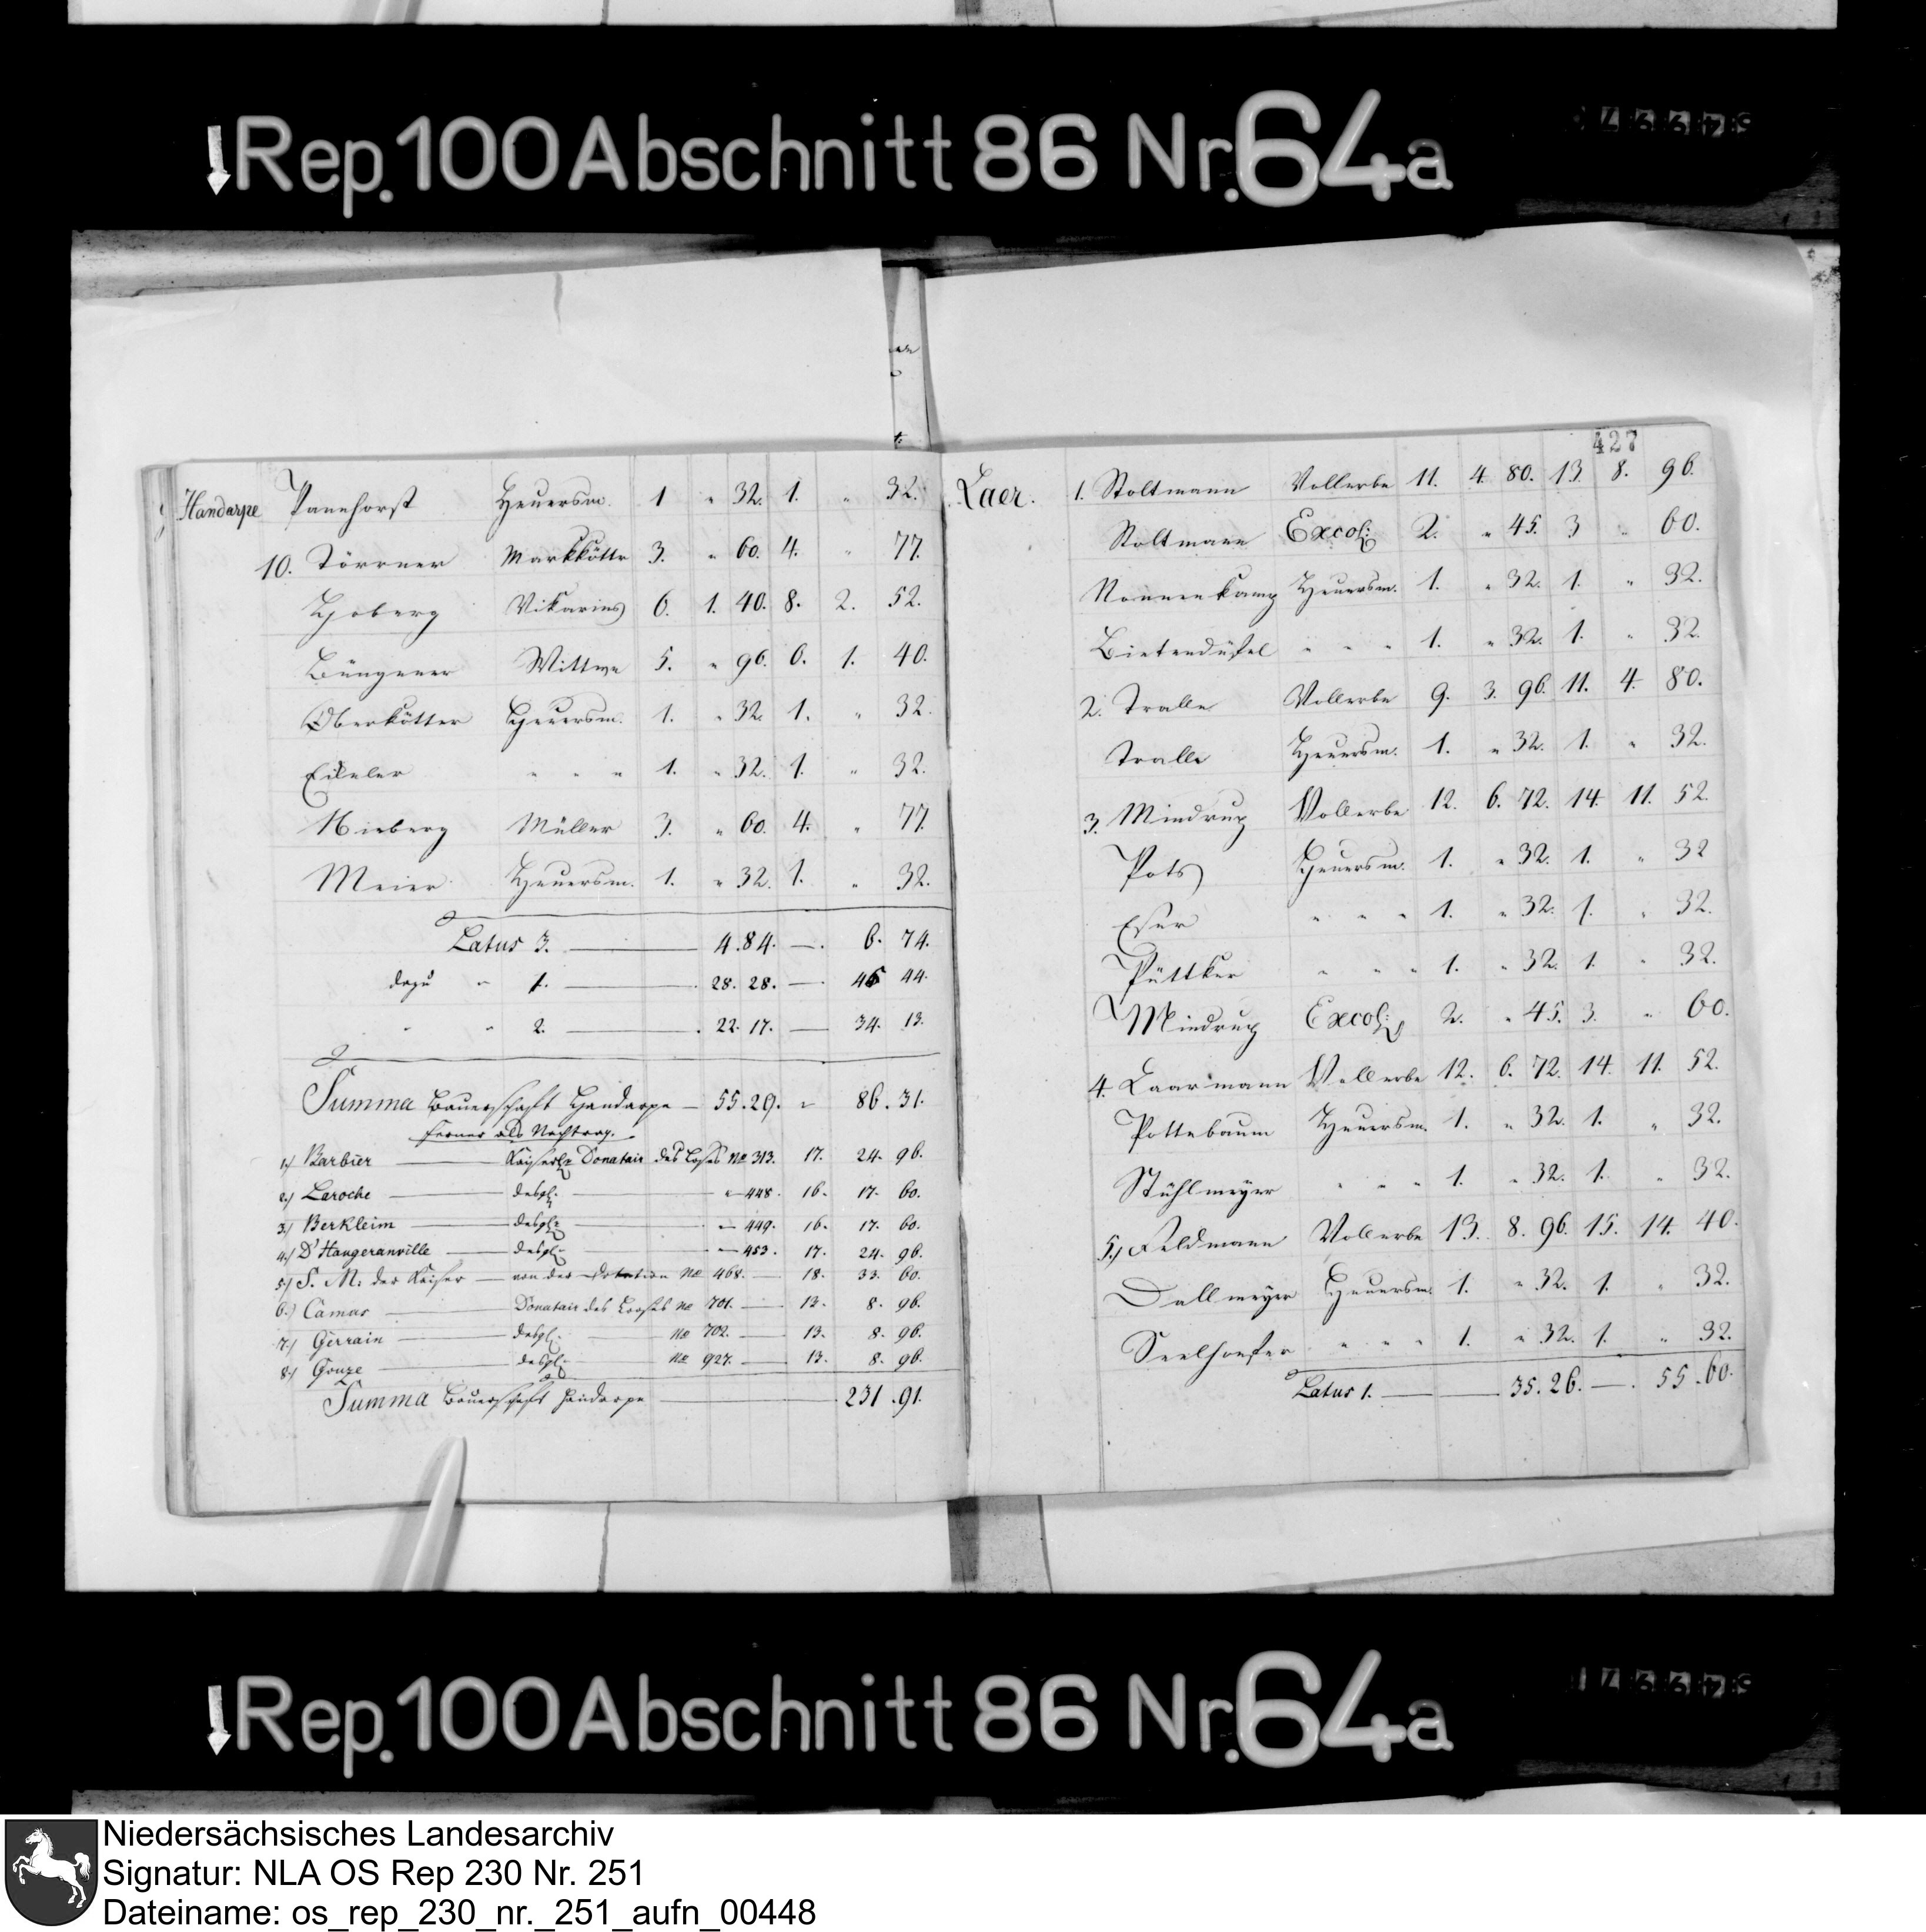 Rep. 100 Abschnitt 86 Nr. 64a
Handarpe Pannhorst Heuersm. 1 " 32. 1. " 32.
10. Törrner Markkötter 3. " 60. 4. " 77.
Hoberg Vikarius 6. 1. 40. 8. 2. 52.
Büngener Wittwe 5. " 96. 6. 1. 40.
Oberkötter Heuersm. 1. " 32. 1. " 32.
" " " 1. " 32. 1. " 32.
Nieberg Müller 3. " 60. 4. " 77.
Meier Heuersm. 1. " 32. 1. " 32.
Latus 3. — 4.84. — 6. 74.
dazu " 1. — 28. 28. — 45 44.
" " 2. — 22. 17. — 34. 13.
Summa Bauerschaft Handarpe — 55.29. " 86.31.
Ferner als Nachtrag.
1.) Barbier — Kaiserl. Donatair des Loses No 313. 17. 24. 96.
2.) Laroche — desgl. — " 448. 16. 17. 60.
3.) Berkleim — desgl. — " 449. 16. 17. 60.
4.) D'Haugeranville — desgl. — " 453. 17. 24. 96.
5.) S. M. der Kaiser — von der Dotation No 468. — 18. 33. 60.
6.) Camas — Donatair des Looses No 701. — 13. 8. 96.
7.) Gerrain — desgl. — No 702. — 13. 8. 96.
8.) Gouze — desgl. — No 927. — 13. 8. 96.
Summa Bauerschaft Handarpe — 231.91.
427
Laer. 1. Stoltmann Vollerbe 11. 4. 80. 13. 8. 96.
Stoltmann Excol: 2. " 45. 3 " 60.
Nonnenkamp Heuersm. 1. " 32. 1. " 32.
Bietendüfel " " " 1. " 32. 1. " 32.
2. Tralle Vollerbe 9. 3. 96. 11. 4. 80.
Tralle Heuersm. 1. " 32. 1. " 32.
3. Mindrup Vollerbe 12. 6. 72. 14. 11. 52.
Pots Heuersm. 1. " 32. 1. " 32
Eser " " " 1. " 32. 1. " 32.
Püttker " " " 1. " 32. 1. " 32.
Mindrup Excol: 2. " 45. 3. " 60.
4. Laarmann Vollerbe 12. 6. 72. 14. 11. 52.
Pottebaum Heuersm. 1. " 32. 1. " 32.
Stühlmeyer " " " 1. " 32. 1. " 32.
5.) Feldmann Vollerbe 13. 8. 96. 15. 14. 40.
Dallmeyer Heuersm. 1. " 32. 1. " 32.
Seelhoefer " " " 1. " 32. 1. " 32.
Latus 1. — 35. 26. — 55.60.
Rep. 100 Abschnitt 86 Nr. 64a
Niedersächsisches Landesarchiv
Signatur: NLA OS Rep 230 Nr. 251
Dateiname: os_rep_230_nr._251_aufn_00448